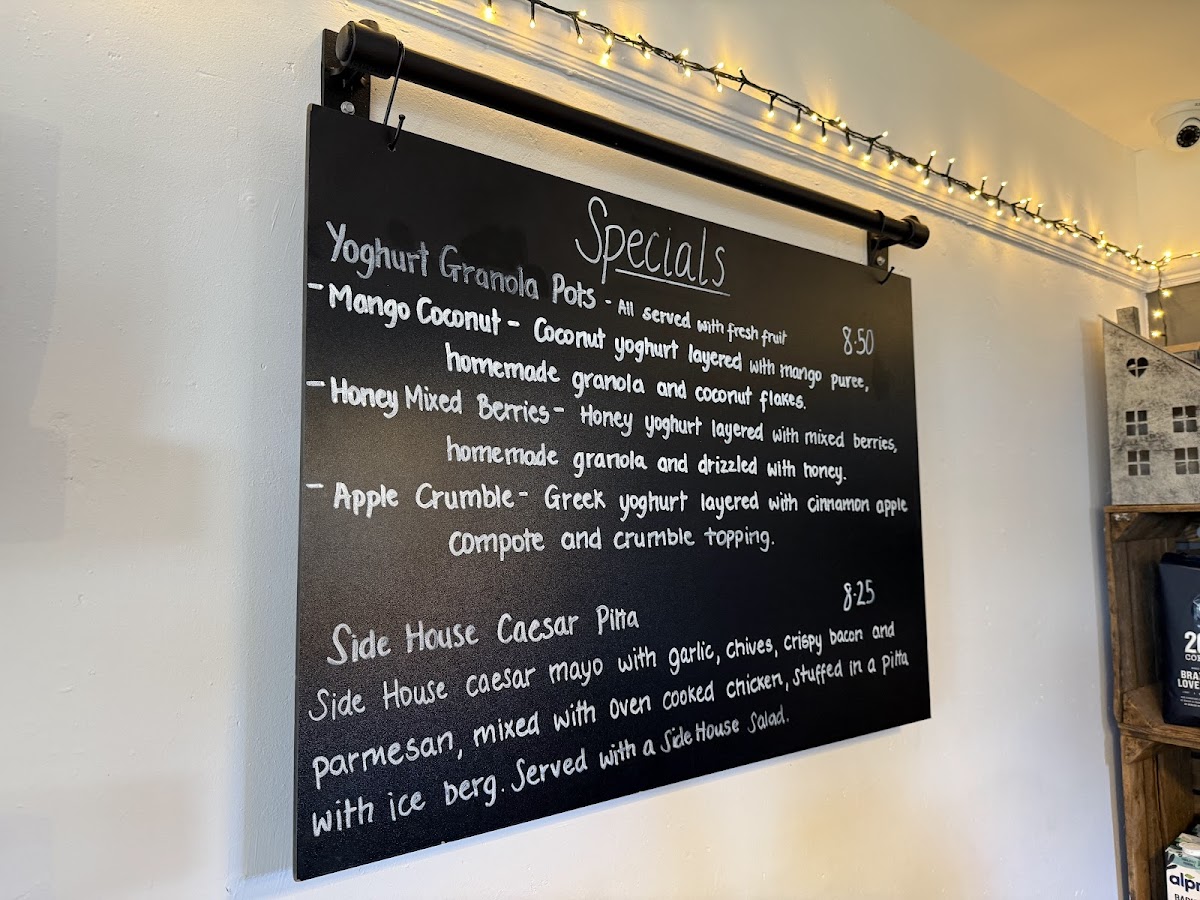 Specials
Yoghurt Granola Pots - All served with fresh fruit 8.50
- Mango Coconut - Coconut yoghurt layered with mango puree,
homemade granola and coconut flakes.
- Honey Mixed Berries - Honey yoghurt layered with mixed berries,
homemade granola and drizzled with honey.
- Apple Crumble - Greek yoghurt layered with cinnamon apple
compote and crumble topping.
Side House Caesar Pitta 8.25
Side House caesar mayo with garlic, chives, crispy bacon and
parmesan, mixed with oven cooked chicken, stuffed in a pitta
with ice berg. Served with a Side House Salad.